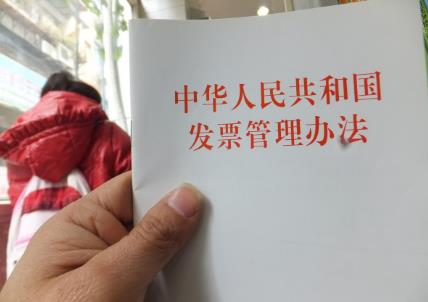 中华人民共和国
发票管理办法